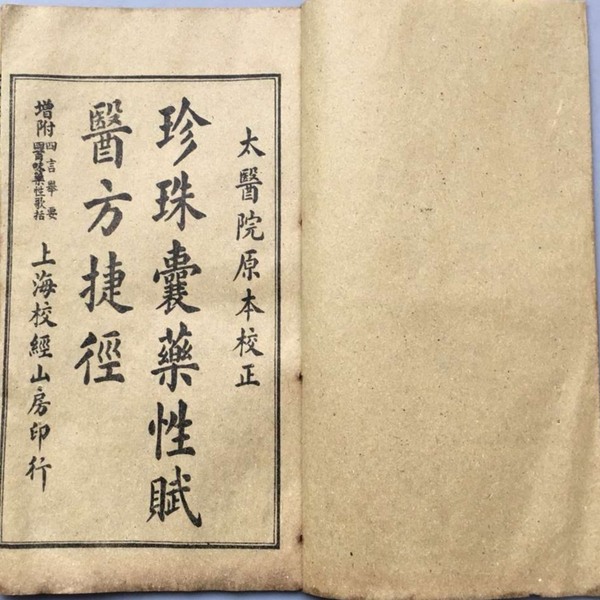 太醫院原本校正
珍珠囊藥性賦
醫方捷徑
增附四言舉要四百味藥性歌括
上海校經山房印行